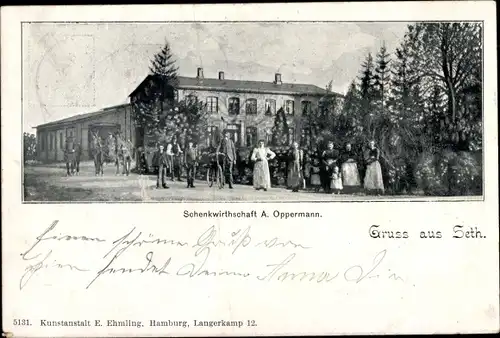 Schenkwirthschaft A. Oppermann.
Gruss aus Seth.
einen schöne Gruß von
sendet Deine Anna
5131. Kunstanstalt E. Ehmling, Hamburg, Langerkamp 12.